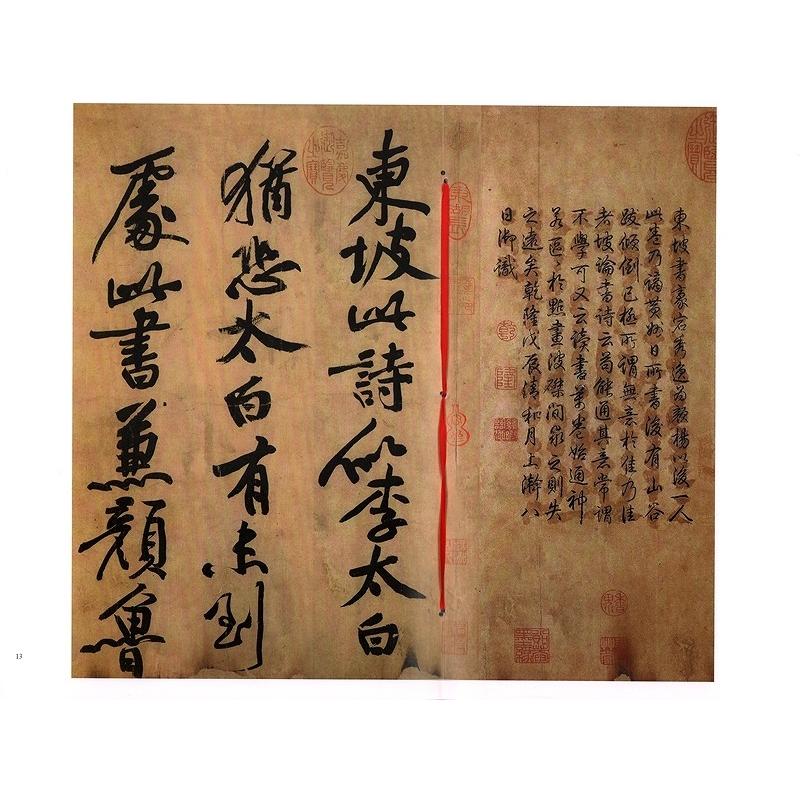 東坡書豪宕秀逸為顏楊以後一人
此卷乃謫黃州日所書後有山谷
跋傾倒已極所謂無意於佳乃佳
者坡論書詩云苟能通其意常謂
不學可又云讀書萬卷始通神
若區區於點畫波磔間求之則失
之遠矣乾隆戊辰清和月上澣八
日御識
東坡此詩似李太白
猶恐太白有未到
處此書兼顏魯
嘉慶御覽之寶
13